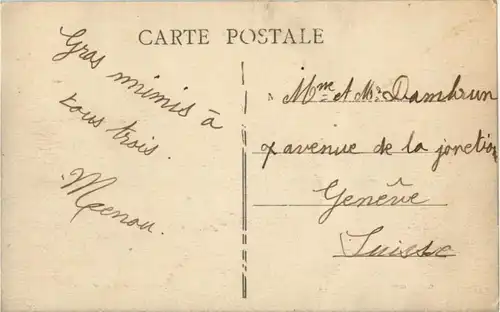 CARTE POSTALE
Gros mimis à
tous trois.
Meenou.
Mme et Mr Dambrun
7 avenue de la jonction
Genêve
Suisse